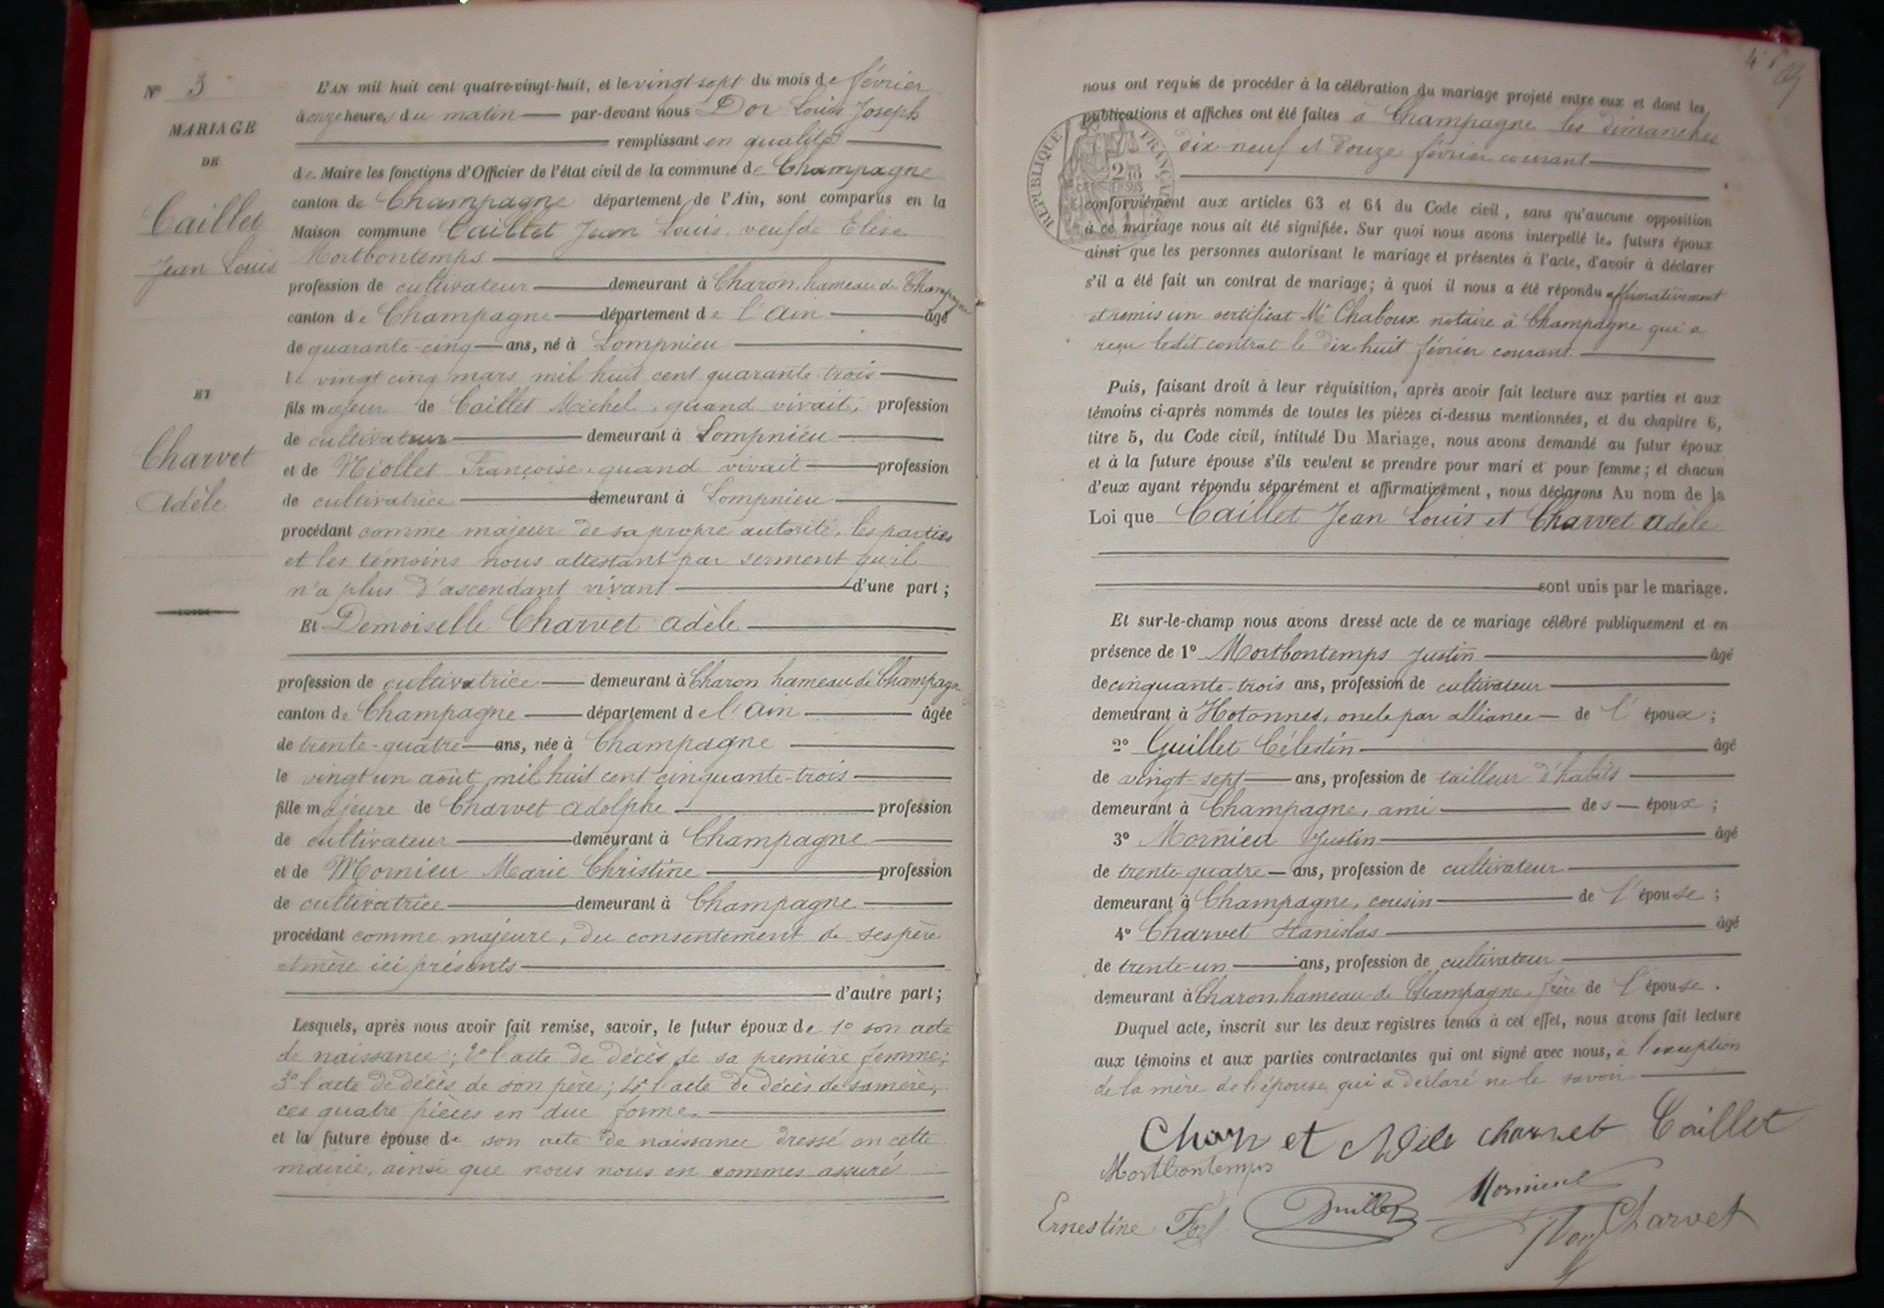 N° 3
MARIAGE
DE
Caillet
Jean Louis
ET
Charvet
Adèle
L'AN mil huit cent quatre-vingt-huit, et le vingt sept du mois de février
à onze heures du matin par-devant nous Dor Louis Joseph
remplissant en qualité
de Maire les fonctions d'Officier de l'état civil de la commune de Champagne
canton de Champagne département de l'Ain, sont comparus en la
Maison commune Caillet Jean Louis veuf de Elise
Mortbontemps
profession de cultivateur demeurant à Charon, hameau de Champagne
canton de Champagne département de l'Ain âgé
de quarante-cinq ans, né à Lompnieu
le vingt cinq mars mil huit cent quarante trois
fils majeur de Caillet Michel, quand vivait, profession
de cultivateur demeurant à Lompnieu
et de Niollet Françoise, quand vivait profession
de cultivatrice demeurant à Lompnieu
procédant comme majeur de sa propre autorité, les parties
et les témoins nous attestant par serment qu'il
n'a plus d'ascendant vivant d'une part ;
Et Demoiselle Charvet Adèle
profession de cultivatrice demeurant à Charon hameau de Champagne
canton de Champagne département de l'Ain âgée
de trente-quatre ans, née à Champagne
le vingt un août mil huit cent cinquante-trois
fille majeure de Charvet Adolphe profession
de cultivateur demeurant à Champagne
et de Mornieu Marie Christine profession
de cultivatrice demeurant à Champagne
procédant comme majeure, du consentement de ses père
et mère ici présents
d'autre part ;
Lesquels, après nous avoir fait remise, savoir, le futur époux de 1° son acte
de naissance ; 2° l'acte de décès de sa première femme ;
3° l'acte de décès de son père ; 4° l'acte de décès de sa mère,
ces quatre pièces en due forme.
et la future épouse de son acte de naissance dressé en cette
mairie, ainsi que nous nous en sommes assuré
nous ont requis de procéder à la célébration du mariage projeté entre eux et dont les
publications et affiches ont été faites à Champagne les dimanches
dix-neuf et douze février courant
RÉPUBLIQUE FRANÇAISE
conformément aux articles 63 et 64 du Code civil, sans qu'aucune opposition
à ce mariage nous ait été signifiée. Sur quoi nous avons interpellé les futurs époux
ainsi que les personnes autorisant le mariage et présentes à l'acte, d'avoir à déclarer
s'il a été fait un contrat de mariage ; à quoi il nous a été répondu affirmativement
et remis un certificat Me Chaboux notaire à Champagne qui a
reçu ledit contrat le dix huit février courant.
Puis, faisant droit à leur réquisition, après avoir fait lecture aux parties et aux
témoins ci-après nommés de toutes les pièces ci-dessus mentionnées, et du chapitre 6,
titre 5, du Code civil, intitulé Du Mariage, nous avons demandé au futur époux
et à la future épouse s'ils veulent se prendre pour mari et pour femme ; et chacun
d'eux ayant répondu séparément et affirmativement, nous déclarons Au nom de la
Loi que Caillet Jean Louis et Charvet Adèle
sont unis par le mariage.
Et sur-le-champ nous avons dressé acte de ce mariage célébré publiquement et en
présence de 1° Mortbontemps Justin âgé
de cinquante-trois ans, profession de cultivateur
demeurant à Hotonnes, oncle par alliance de l'époux ;
2° Guillet Célestin âgé
de vingt-sept ans, profession de tailleur d'habits
demeurant à Champagne, ami des époux ;
3° Mornieu Justin âgé
de trente-quatre ans, profession de cultivateur
demeurant à Champagne, cousin de l'épouse ;
4° Charvet Stanislas âgé
de trente-un ans, profession de cultivateur
demeurant à Charon hameau de Champagne, frère de l'épouse.
Duquel acte, inscrit sur les deux registres tenus à cet effet, nous avons fait lecture
aux témoins et aux parties contractantes qui ont signé avec nous, à l'exception
de la mère de l'épouse qui a déclaré ne le savoir
Charvet Adèle Charvet Caillet
Mortbontemps
Guillet Mornieu
Ernestine Dor Charvet